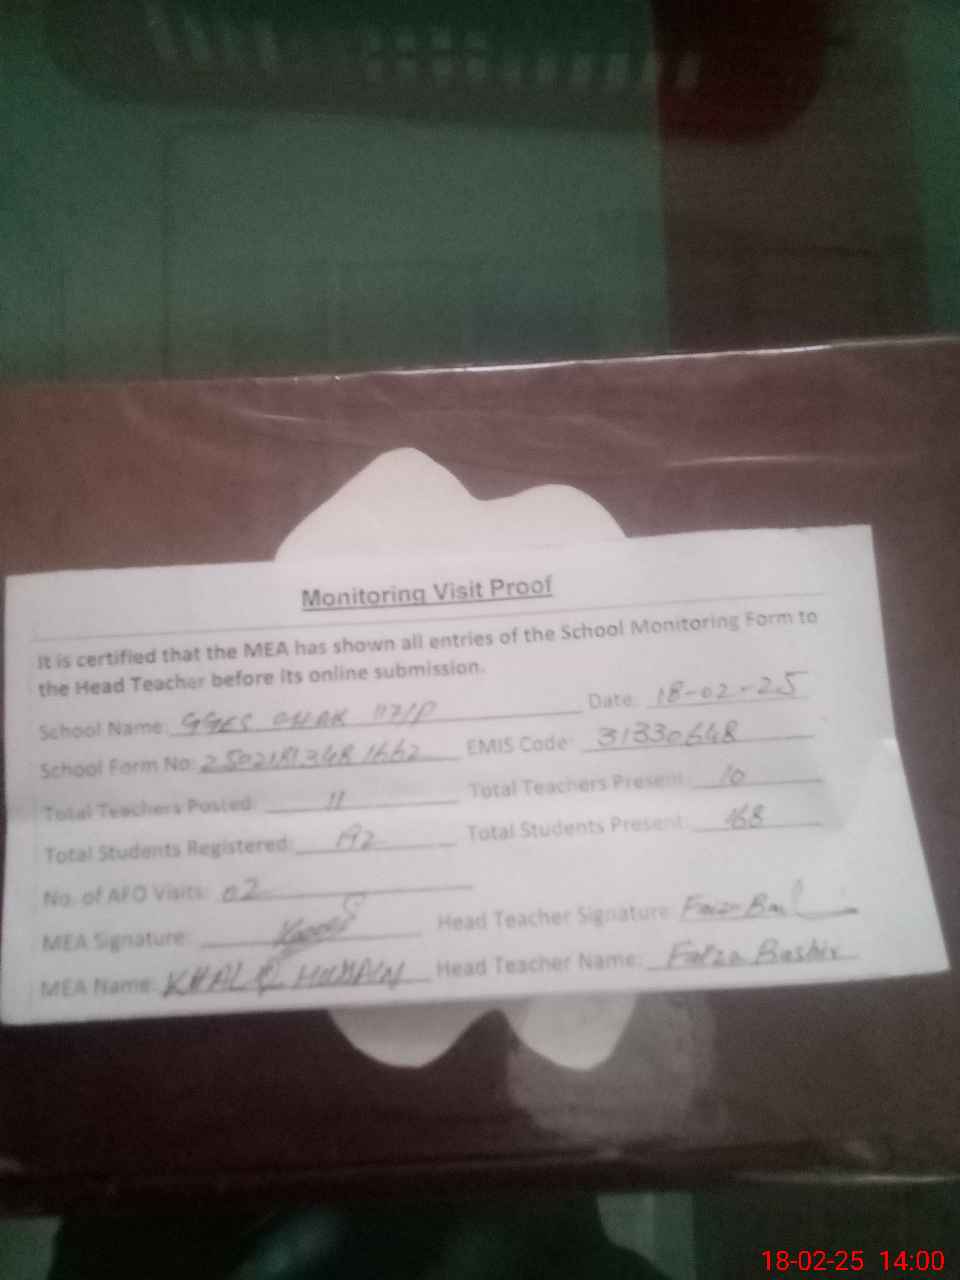 Monitoring Visit Proof
It is certified that the MEA has shown all entries of the School Monitoring Form to
the Head Teacher before its online submission.
School Name: GGES CHAK 117/P Date: 18-02-25
School Form No: EMIS Code: 31330648
Total Teachers Posted: 11 Total Teachers Present: 10
Total Students Registered: 192 Total Students Present: 168
No. of AEO Visits: 02
MEA Signature: Head Teacher Signature: Faiza
MEA Name: KHALIQ HUSSAIN Head Teacher Name: Faiza Bashir
18-02-25 14:00